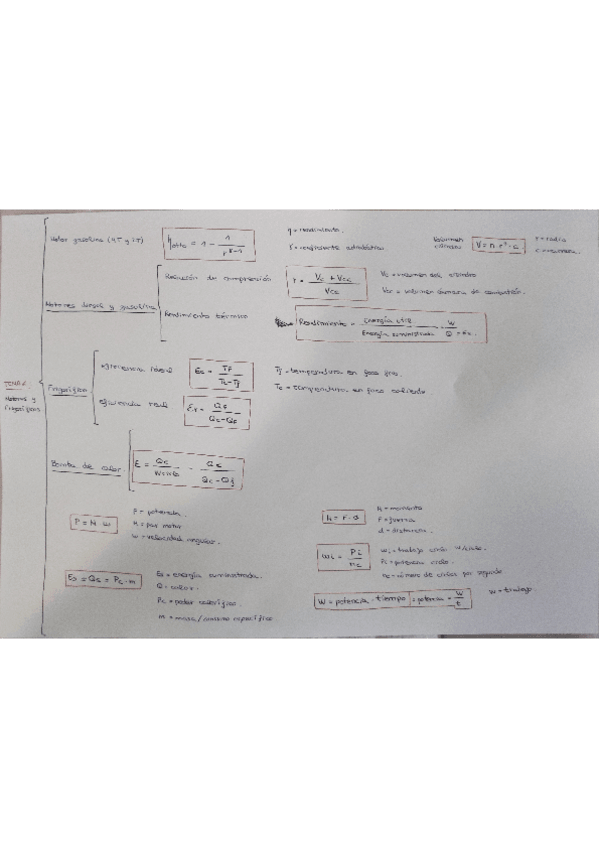 Motor gasolina (4T y 2T)
η otto = 1 - 1 / r^γ-1
η = rendimiento.
γ = coeficiente adiabático.
Volumen
V = π · r² · c
r = radio
c = carrera.
Motores diesel y gasolina
Relación de compresión
r = Vc + Vcc / Vcc
Vc = volumen del cilindro
Vcc = volumen cámara de combustión.
Rendimiento térmico
Rendimiento = Energía útil / Energía suministrada = W / Q = Es.
TEMA
Motores y
Frigoríficos
Frigorífico
Eficiencia ideal
Es = Tf / Tc - Tf
Tf = temperatura en foco frío.
Tc = temperatura en foco caliente.
Eficiencia real
Er = Qf / Qc - Qf
Bomba de calor
E = Qc / = Qc / Qc - Qf
P = M · ω
P = potencia.
M = par motor
ω = velocidad angular.
M = F · d
M = momento
F = fuerza
d = distancia.
Wi = Pi / nc
Wi = trabajo
Pi = potencia ciclo.
nc = número de ciclos por segundo
Es = Qc = Pc · m
Es = energía suministrada.
Q = calor.
Pc = poder calorífico.
m = masa / consumo específico
W = potencia · tiempo = potencia = W / t
W = trabajo